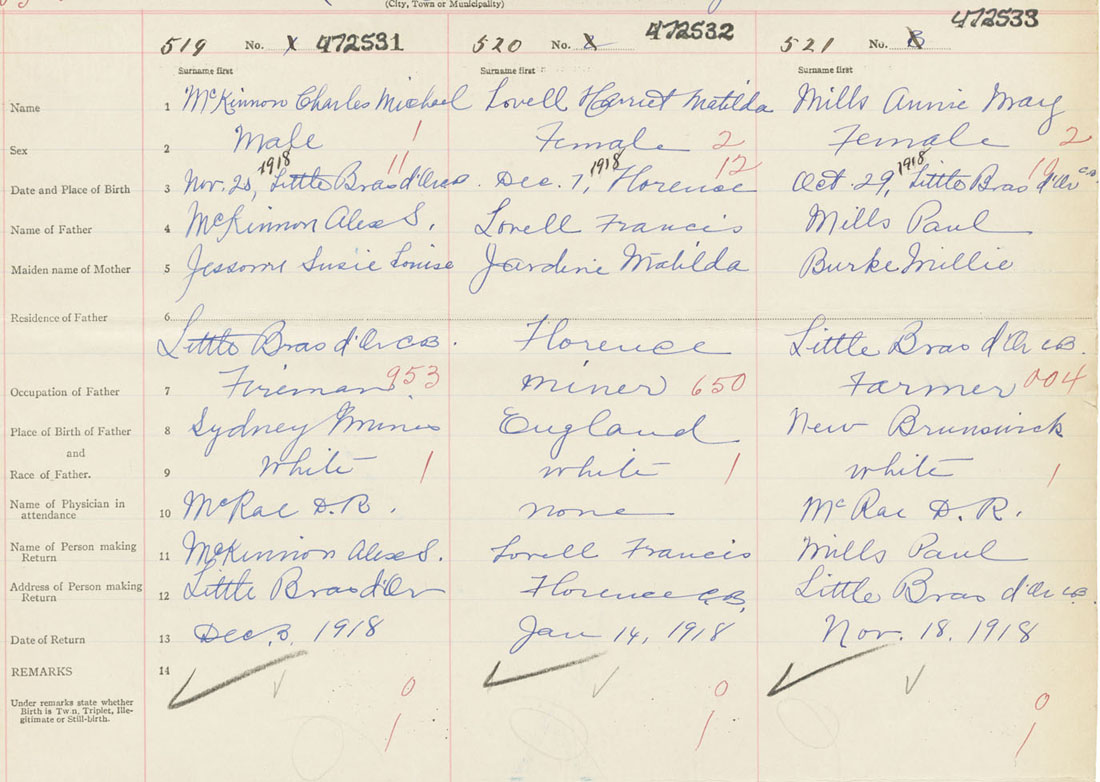 (City, Town or Municipality)
519 No. X 472531 520 No. X 472532 521 No. X 472533
Surname first Surname first Surname first
Name 1 McKinnon Charles Michael Lovell Harriet Matilda Mills Annie Mary
Sex 2 Male 1 Female 2 Female 2
1918 11 1918 12 1918 10
Date and Place of Birth 3 Nov. 20, Little Bras d'Or CB. Dec. 7, Florence Oct. 29, Little Bras d'Or CB.
Name of Father 4 McKinnon Alex S. Lovell Francis Mills Paul
Maiden name of Mother 5 Jessome Susie Louise Jardine Matilda Burke Millie
Residence of Father 6
Little Bras d'Or CB. Florence Little Bras d'Or CB.
Occupation of Father 7 Fireman 953 Miner 650 Farmer 004
Place of Birth of Father 8 Sydney Mines England New Brunswick
and
Race of Father. 9 White 1 White 1 White 1
Name of Physician in attendance 10 McRae D.R. none McRae D.R.
Name of Person making Return 11 McKinnon Alex S. Lovell Francis Mills Paul
Address of Person making Return 12 Little Bras d'Or Florence C.B. Little Bras d'Or CB.
Date of Return 13 Dec. 3, 1918 Jan 14, 1918 Nov. 18, 1918
REMARKS 14
Under remarks state whether
Birth is Twin, Triplet, Ille-
gitimate or Still-birth.
0 0 0
1 1 1